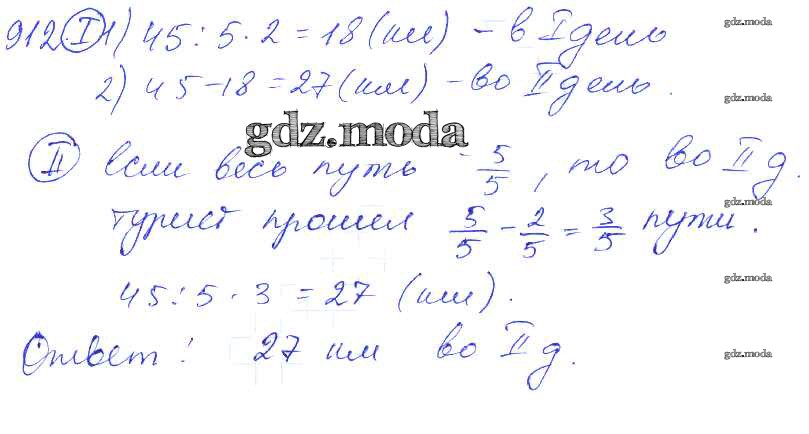 912. I 1) 45 : 5 · 2 = 18 (км) – в I день
gdz.moda
2) 45 – 18 = 27 (км) – во II день.
gdz.moda
gdz.moda
II Если весь путь – 5/5, то во II д.
gdz.moda
турист прошел 5/5 – 2/5 = 3/5 пути.
45 : 5 · 3 = 27 (км).
gdz.moda
Ответ: 27 км во II д.
gdz.moda